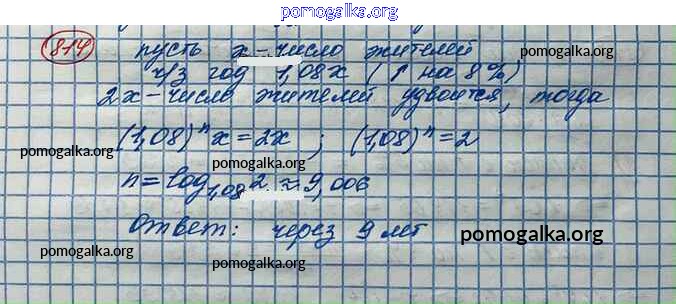 pomogalka.org
814 пусть x – число жителей
pomogalka.org
ч/з год 1,08x (↑ на 8%)
2x – число жителей удвоится, тогда
(1,08)ⁿx = 2x ; (1,08)ⁿ = 2
pomogalka.org
pomogalka.org
pomogalka.org
n = log₁,₀₈2 ≈ 9,006
pomogalka.org
Ответ: через 9 лет
pomogalka.org
pomogalka.org
pomogalka.org